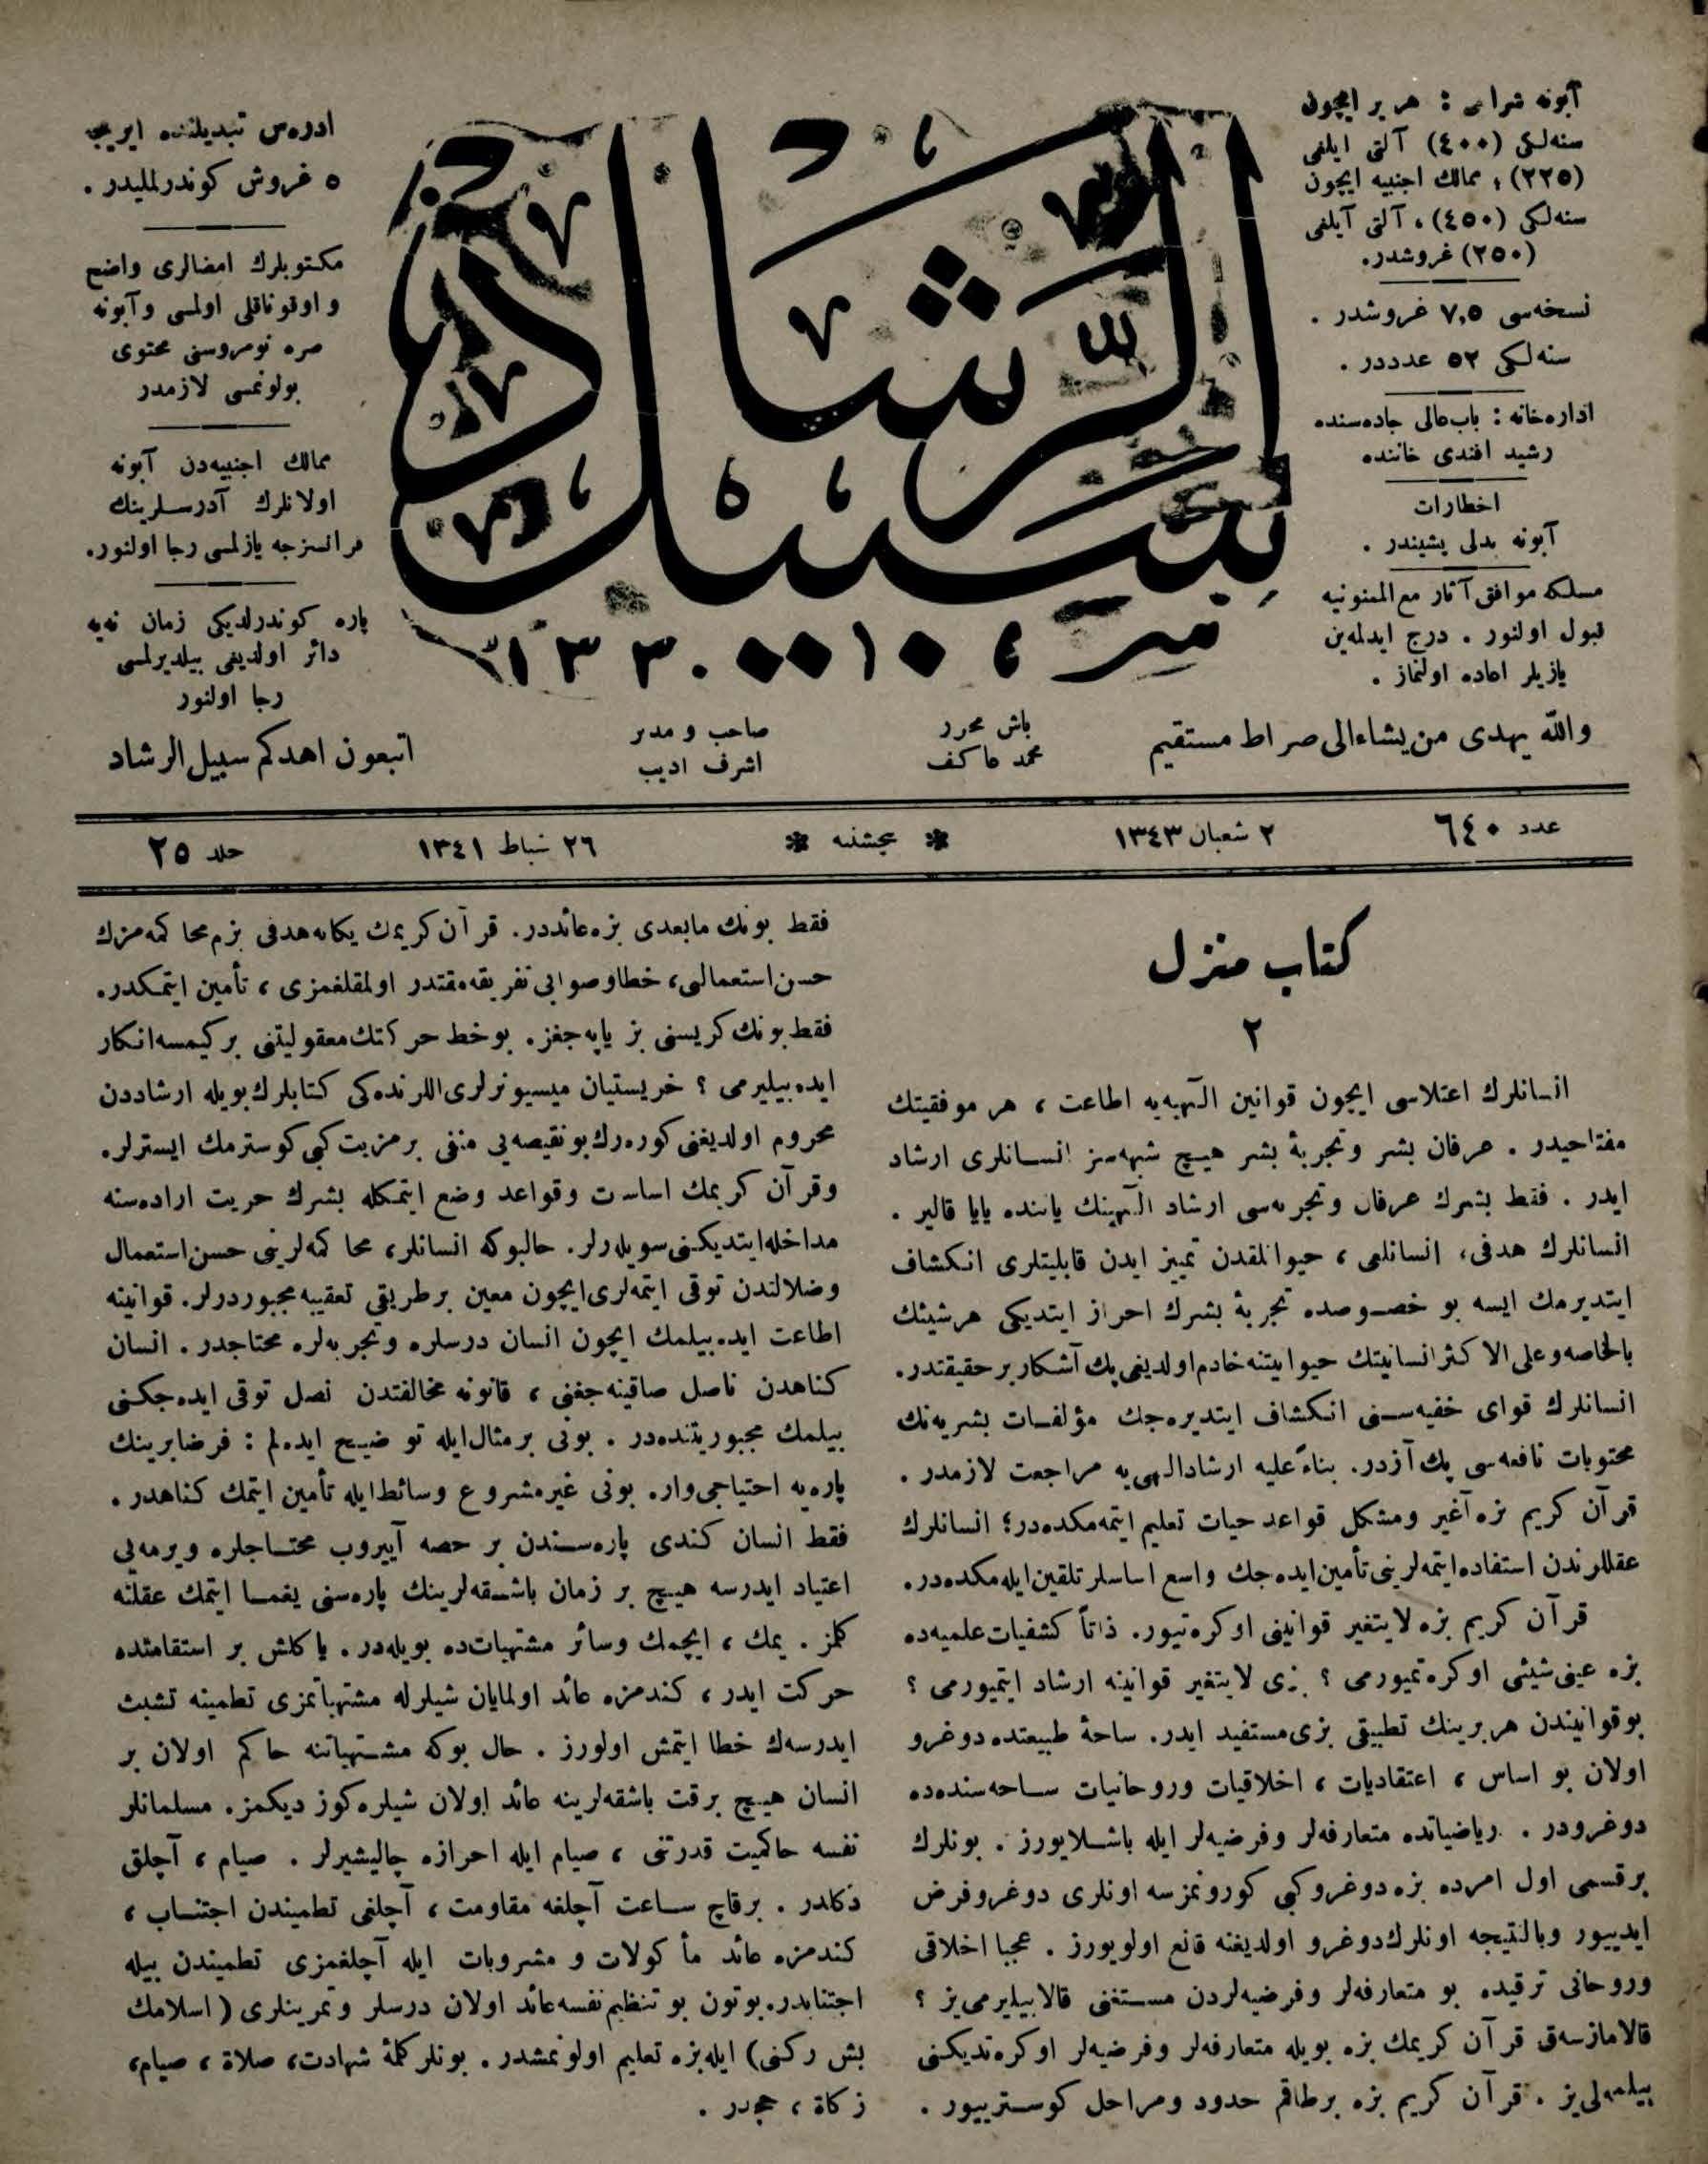 آبونه شرائطی : هر یر ایچون
سنه‌لکی (٤٠٠) آلتی ایلغی
(٢٢٥) ؛ ممالك اجنبیه ایچون
سنه‌لکی (٤٥٠) ، آلتی آیلغی
(٢٥٠) غروشدر.
نسخه‌سی ٧,٥ غروشدر .
سنه‌لکی ٥٢ عدددر .
اداره‌خانه : باب‌عالی جاده‌سنده
رشید افندی خاننده
اخطارات
آبونه بدلی پشیندر .
مسلکه موافق آثار مع‌الممنونیه
قبول اولنور . درج ایدلمه‌ین
یازیلر اعاده اولنماز .
سبیل الرشاد
ادرەس تبدیلنده ایریجه
٥ غروش کوندرلملیدر .
مکتوبلرك امضالری واضح
و اوقوناقلی اولمسی و آبونه
صره نومروسنی محتوی
بولونمسی لازمدر
ممالك اجنبیه‌دن آبونه
اولانلرك آدرسلرینك
فرانسزجه یازلمسی رجا اولنور.
پاره کوندرلدیکی زمان نه‌یه
دائر اولدیغی بیلدیرلمسی
رجا اولنور
والله یهدی من یشاء الی صراط مستقیم
باش محرر
محمد عاکف
صاحب و مدیر
اشرف ادیب
اتبعون اهدکم سبیل الرشاد
عدد ٦٤٠
٢ شعبان ١٣٤٣
پنجشنبه
٢٦ شباط ١٣٤١
جلد ٢٥
کتاب منزل
٢
انسانلرك اعتلاسی ایچون قوانین الٓهیه‌یه اطاعت ، هر موفقیتك
مفتاحیدر . عرفان بشر و تجربۀ بشر هیچ شبهه‌سز انسانلری ارشاد
ایدر . فقط بشرك عرفان و تجربه‌سی ارشاد الٓهینك یاننده یایا قالیر .
انسانلرك هدفی، انسانلغی ، حیوانلقدن تمییز ایدن قابلیتلری انکشاف
ایتدیرمك ایسه بو خصوصده تجربۀ بشرك احراز ایتدیکی هرشیئك
بالخاصه و علی الاکثر انسانیتك حیوانیتنه خادم اولدیغی پك آشکار بر حقیقتدر.
انسانلرك قوای خفیه‌سنی انکشاف ایتدیره‌جك مؤلفات بشریه‌نك
محتویات نافعه‌سی پك آزدر. بناءً علیه ارشاد الٓهی‌یه مراجعت لازمدر .
قرآن کریم بزه آغیر و مشکل قواعد حیات تعلیم ایتمه‌مکده‌در؛ انسانلرك
عقللرندن استفاده ایتمه‌لرینی تأمین ایده‌جك واسع اساسلر تلقین ایله‌مکده‌در.
قرآن کریم بزه لایتغیر قوانینی اوکره‌تییور. ذاتاً کشفیات علمیه‌ده
بزه عینی شیئی اوکره‌تمیورمی ؟ بزی لایتغیر قوانینه ارشاد ایتمیورمی ؟
بو قوانیندن هربرینك تطبیقی بزی مستفید ایدر. ساحۀ طبیعتده دوغرو
اولان بو اساس ، اعتقادیات ، اخلاقیات و روحانیات ساحه‌سنده‌ده
دوغرودر . ریاضیاتده متعارفه‌لر و فرضیه‌لر ایله باشلایورز . بونلرك
بر قسمی اول امرده بزه دوغرو کبی کورونمزسه اونلری دوغرو فرض
ایدییور و بالنتیجه اونلرك دوغرو اولدیغنه قانع اولویورز . عجبا اخلاقی
و روحانی ترقیده بو متعارفه‌لر و فرضیه‌لردن مستغنی قالابیلیرمی‌یز ؟
قالامازسه‌ق قرآن کریمك بزه بویله متعارفه‌لر و فرضیه‌لر اوکره‌تدیکنی
بیلمه‌لی‌یز . قرآن کریم بزه برطاقم حدود و مراحل کوسترییور .
فقط بونك مابعدی بزه عائددر. قرآن کریمك یکانه هدفی بزم محاکمه‌مزك
حسن استعمالی، خطا و صوابی تفریقه مقتدر اولمقلغمزی ، تأمین ایتمکدر.
فقط بونك کریسنی بز یاپه‌جغز. بو خط حرکتك معقولیتنی بر کیمسه انکار
ایده‌بیلیرمی ؟ خریستیان میسیونرلری اللرنده‌کی کتابلرك بویله ارشاددن
محروم اولدیغنی کوره‌رك بو نقیصه‌یی منفی بر مزیت کبی کوسترمك ایسترلر.
و قرآن کریمك اساسات و قواعد وضع ایتمکله بشرك حریت اراده‌سنه
مداخله ایتدیکنی سویلرلر. حالبوکه انسانلر، محاکمه‌لرینی حسن استعمال
و ضلالتدن توقی ایتمه‌لری ایچون معین بر طریقی تعقیبه مجبوردرلر. قوانینه
اطاعت ایده‌بیلمك ایچون انسان درسلره و تجربه‌لره محتاجدر . انسان
کناهدن ناصل صاقینه‌جغنی ، قانونه مخالفتدن نصل توقی ایده‌جکنی
بیلمك مجبوریتنده‌در . بونی بر مثال ایله توضیح ایده‌لم : فرضا برینك
پاره‌یه احتیاجی وار. بونی غیر مشروع وسائط ایله تأمین ایتمك کناهدر .
فقط انسان کندی پاره‌سندن بر حصه آییروب محتاجلره ویرمه‌یی
اعتیاد ایدرسه هیچ بر زمان باشقه‌لرینك پاره‌سنی یغما ایتمك عقلنه
کلمز . یمك ، ایچمك و سائر مشتهیات‌ده بویله‌در . یاکلش بر استقامتده
حرکت ایدر ، کندمزه عائد اولمایان شیلرله مشتهیاتمزی تطمینه تشبث
ایدرسه‌ك خطا ایتمش اولورز . حال بوکه مشتهیاتنه حاکم اولان بر
انسان هیچ بر وقت باشقه‌لرینه عائد اولان شیلره کوز دیکمز. مسلمانلر
نفسه حاکمیت قدرتنی ، صیام ایله احرازه چالیشیرلر . صیام ، آچلق
دکلدر . برقاچ ساعت آچلغه مقاومت ، آچلغی تطمیندن اجتناب ،
کندمزه عائد مأکولات و مشروبات ایله آچلغمزی تطمیندن بیله
اجتنابدر. بوتون بو تنظیم نفسه عائد اولان درسلر و تمرینلری ( اسلامك
بش رکنی) ایله بزه تعلیم اولونمشدر . بونلر کلمۀ شهادت، صلاة ، صیام،
زکاة ، حجدر .